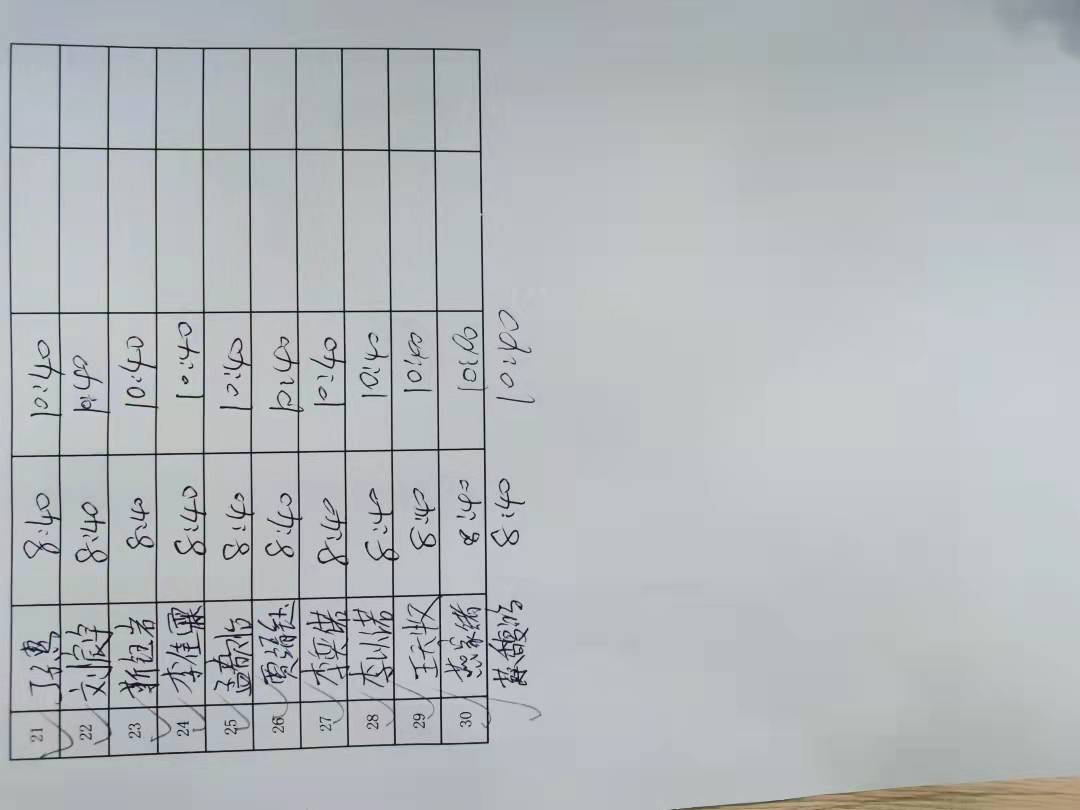 21 8:40 10:40
22 刘宸宇 8:40 10:40
23 靳钰岩 8:40 10:40
24 李佳霖 8:40 10:40
25 孟韵怡 8:40 10:40
26 贾绢钰 8:40 10:40
27 李奕诺 8:40 10:40
28 李以诺 8:40 10:40
29 王天牧 8:40 10:40
30 8:40 10:40
8:40 10:40